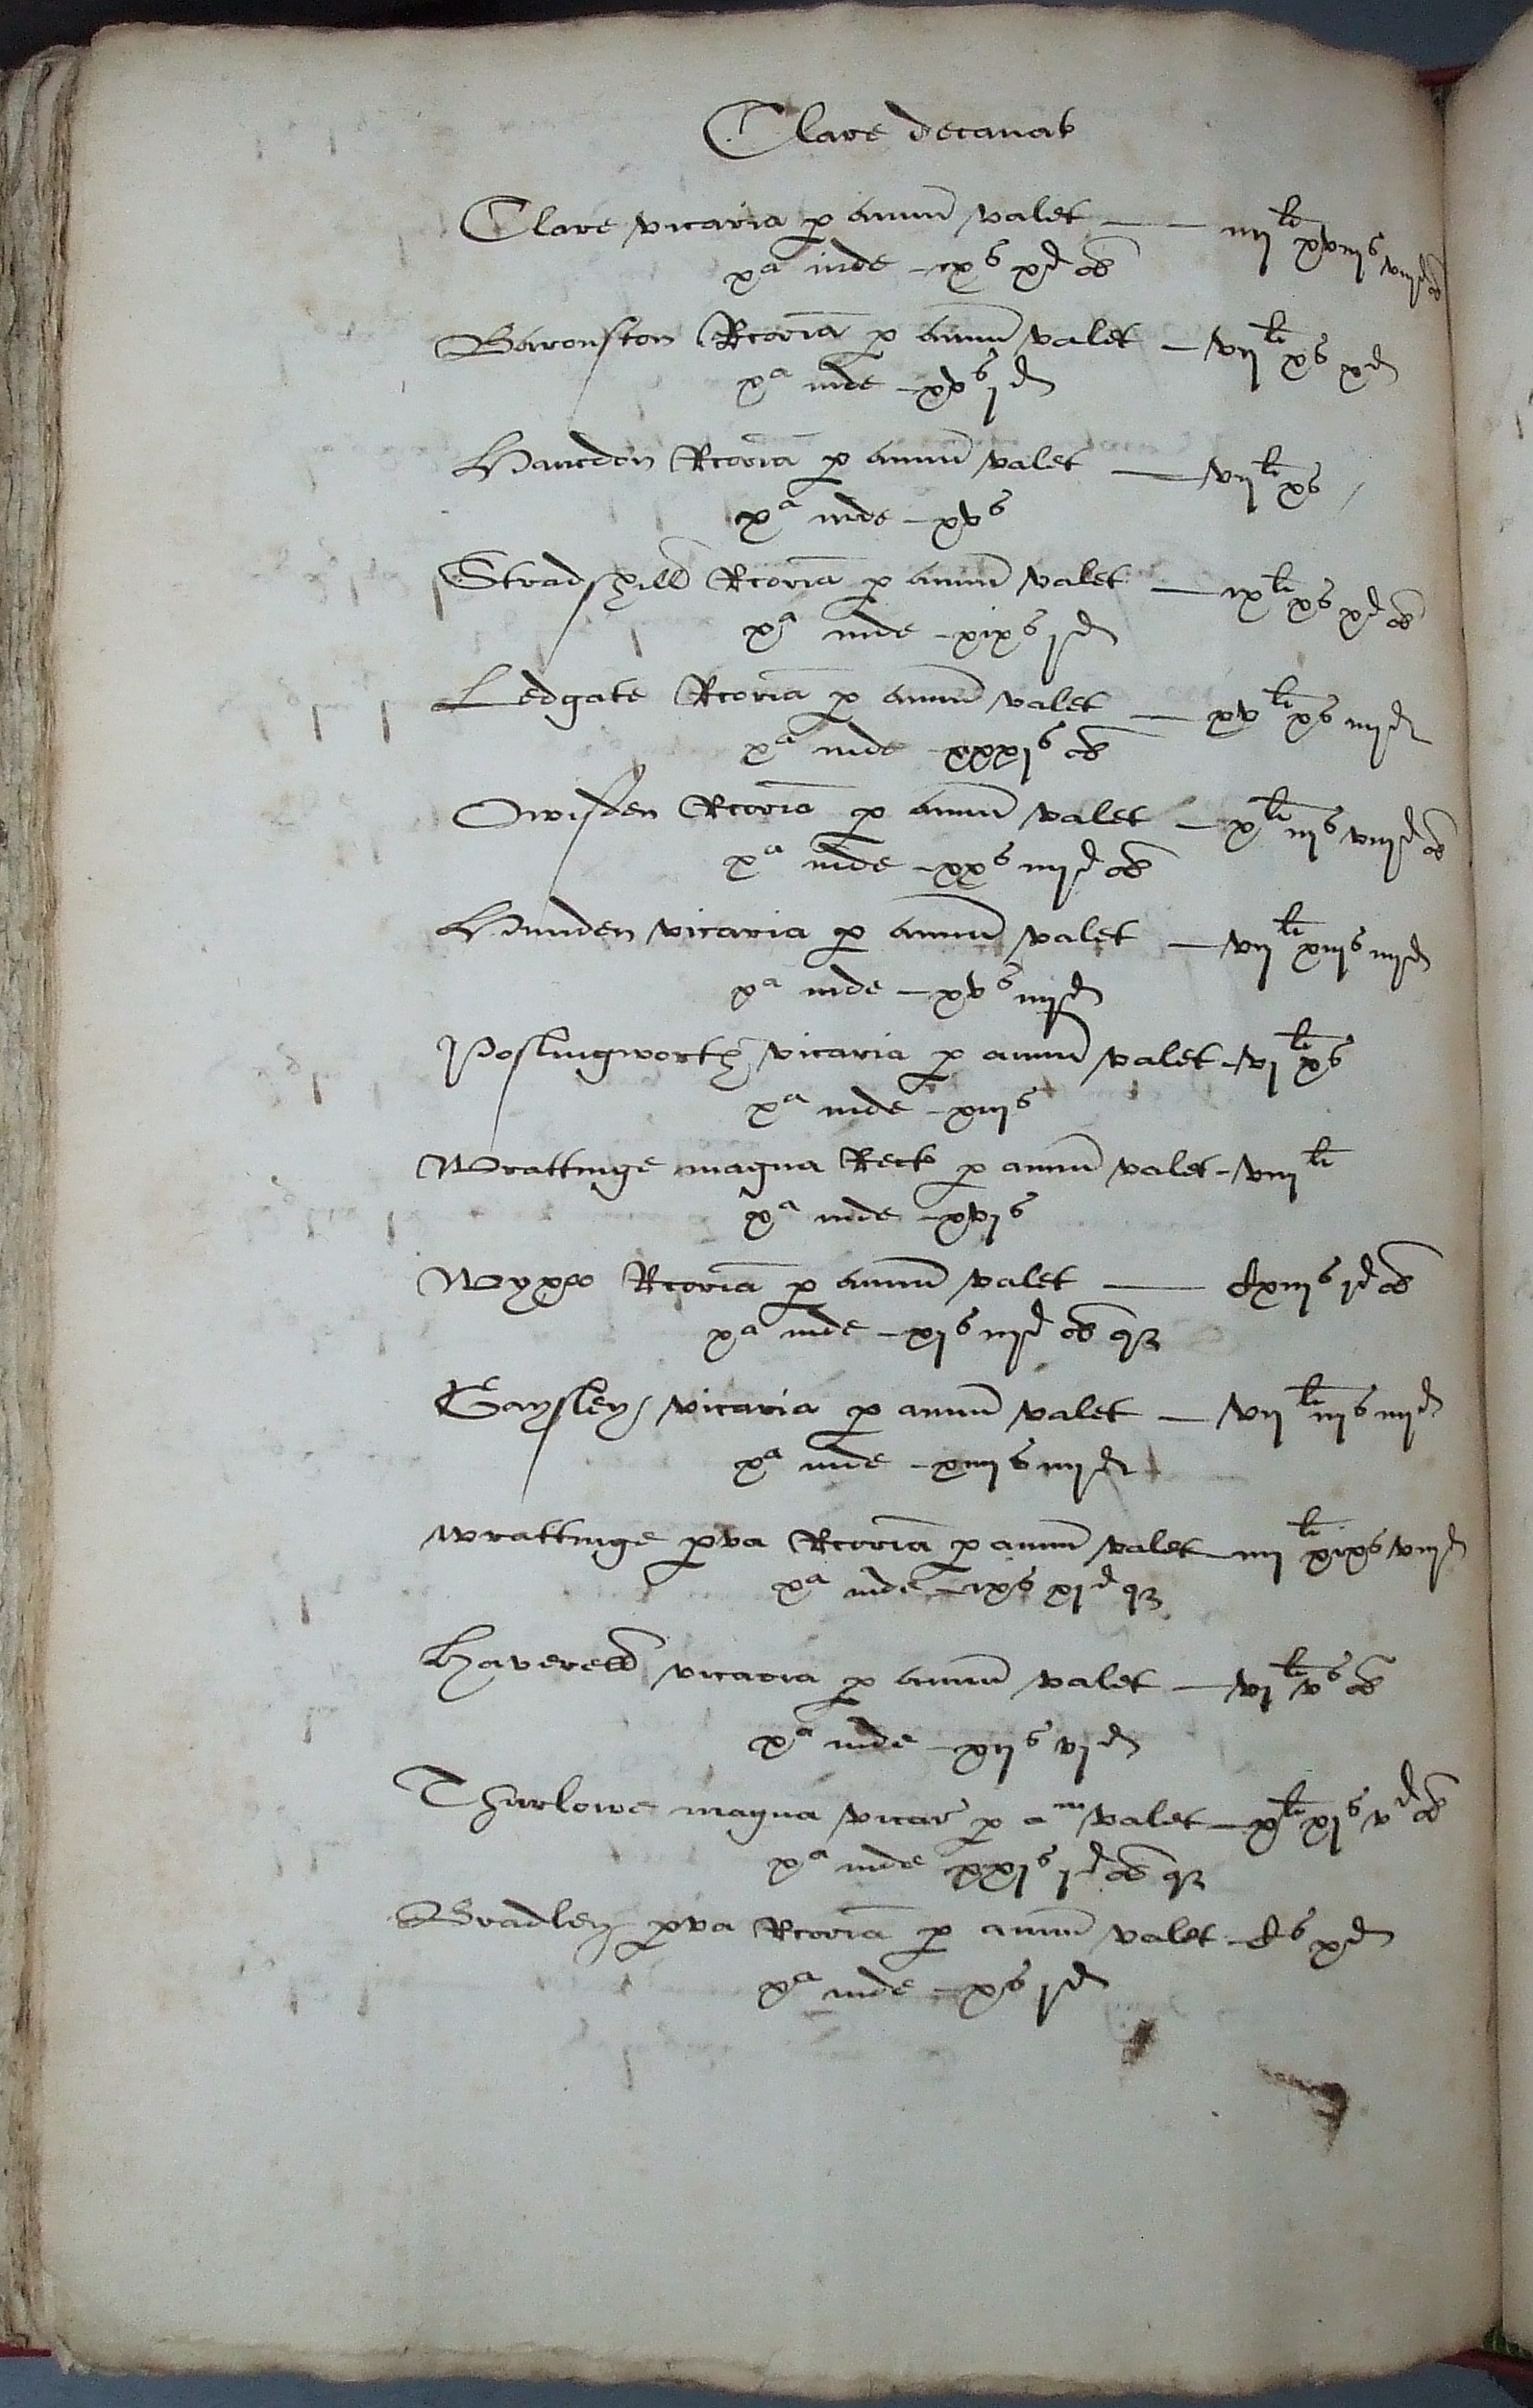 Clare decanat
Clare vicaria p annu valet — iiij li xviijs viijd ob
xa inde – ixs xd ob
Baronston Rcoria p annu valet – vij li xs xd
xa inde – xvs jd
Haucdon Rcoria p annu valet — vij li xs
xa inde – xvs
Stradshill Rcoria p annu valet — ix li xs xd ob
xa inde – xixs jd
Ledgate Rcoria p annu valet — xv li xs iiijd
xa inde xxxjs ob
Owisden Rcoria p annu valet – x li iijs viijd ob
xa inde – xxs iiijd ob
Hunden vicaria p annu valet — vij li xiijs iiijd
xa inde – xvs iiijd
Poslingworth vicaria p annu valet – vj li xs
xa inde – xiijs
Wrattinge magna Rect p annu valet – viij li
xa inde – xvjs
Wyxo Rcoria p annu valet — cxiijs jd ob
xa inde – xjs iijd ob qz
Gaysley vicaria p annu valet — vij li iijs iiijd
xa inde – xiiijs iiijd
Wrattinge pva Rcoria p annu valet – iiij li xixs viijd
xa inde – ixs xjd qz
Haverell vicaria p annu valet — vj li vs ob
xa inde – xijs vjd
Thurlowe magna vicar p a m valet – x li xjs vd ob
xa inde xxjs jd ob qz
Bradley pva Rcoria p annu valet – cs xd
xa inde – xs jd